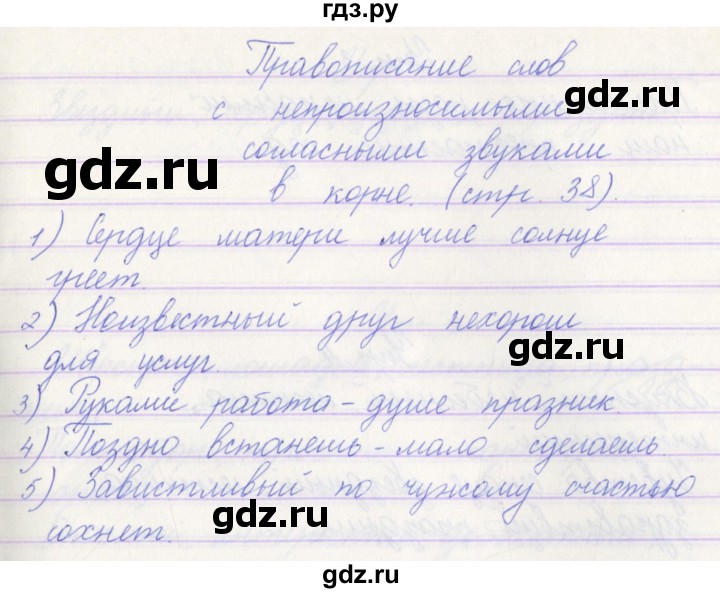 гдз.ру
Правописание слов
с непроизносимыми
gdz.ru
согласными звуками
gdz.ru
в корне. (стр. 38).
1) Сердце матери лучше солнца
греет.
2) Неизвестный друг нехорош
gdz.ru
для услуг.
3) Руками работа - душе празник.
4) Поздно встанешь - мало сделаешь.
5) Завистливый по чужому счастью
gdz.ru
сохнет.
gdz.ru